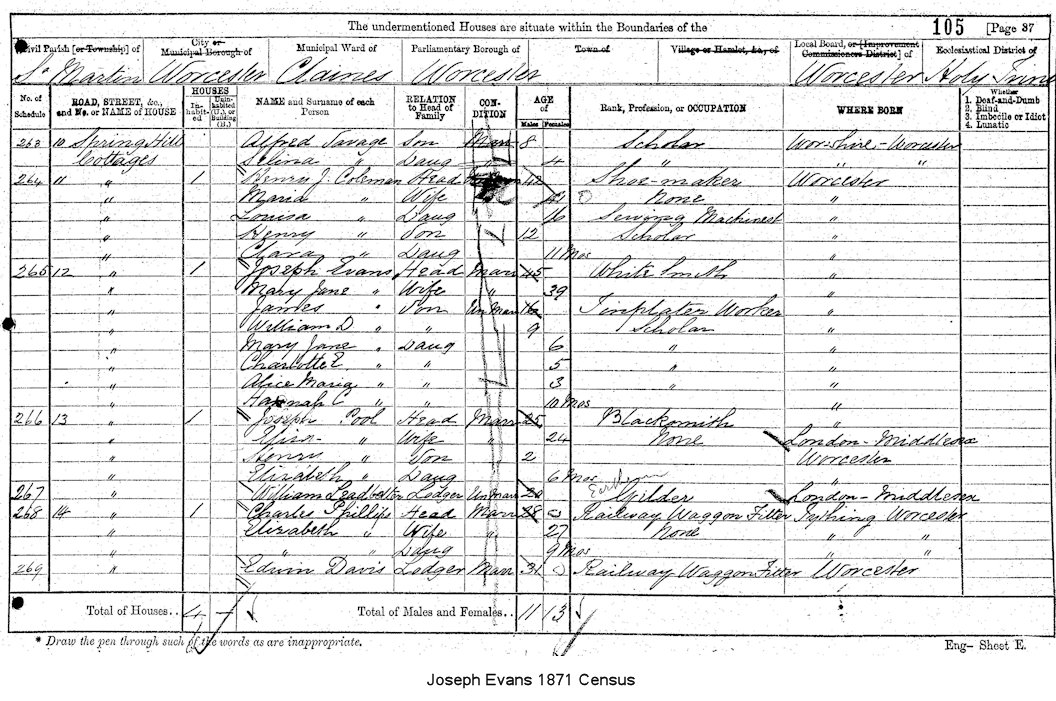 The undermentioned Houses are situate within the Boundaries of the 105 [Page 37
Civil Parish [or Township] of City or Municipal Borough of Municipal Ward of Parliamentary Borough of Town of Village or Hamlet, &c., of Local Board, or [Improvement Commissioners District] of Ecclesiastical District of
St Martin Worcester Claines Worcester Worcester Holy Trin
No. of Schedule ROAD, STREET, &c., and No. or NAME of HOUSE HOUSES Inhabited Uninhabited (U.), or Building (B.) NAME and Surname of each Person RELATION to Head of Family CONDITION AGE of Males Females Rank, Profession, or OCCUPATION WHERE BORN Whether 1. Deaf-and-Dumb 2. Blind 3. Imbecile or Idiot 4. Lunatic
263 10 Spring Hill Alfred Savage Son 8 Scholar Wor-shire-Worcester
Cottages Selina " Daug 4 " " "
264 11 " 1 Henry J. Coleman Head 42 Shoe-maker Worcester
" Maria " Wife 41 None "
" Louisa " Daug 16 Sewing Machinest "
" Henry " Son 12 Scholar "
" Clara " Daug 11 Mos "
265 12 " 1 Joseph Evans Head Marr 45 White Smith "
" Mary Jane " Wife " 39 "
" James " Son UnMarr 16 Tinplater Worker "
" William D " " 9 Scholar "
" Mary Jane " Daug 6 " "
" Charlotte E " " 5 " "
" Alice Maria " " 3 " "
" Hannah C " " 10 Mos "
266 13 " 1 Joseph Pool Head Marr 25 Blacksmith "
" Eliza " Wife " 24 None London-Middlesex
" Henry " Son 2 Worcester
" Elizabeth " Daug 6 Mos "
267 " William Leadbetter Lodger UnMarr 20 Gilder London-Middlesex
268 14 " 1 Charles Phillips Head Marr 28 Railway Waggon Fitter Tything Worcester
" Elizabeth " Wife " 27 None " "
" " " Daug 9 Mos " "
269 " Edwin Davis Lodger Marr 31 Railway Waggon Fitter Worcester
Total of Houses.. 4 - Total of Males and Females.. 11 13
* Draw the pen through such of the words as are inappropriate. Eng- Sheet E.
Joseph Evans 1871 Census